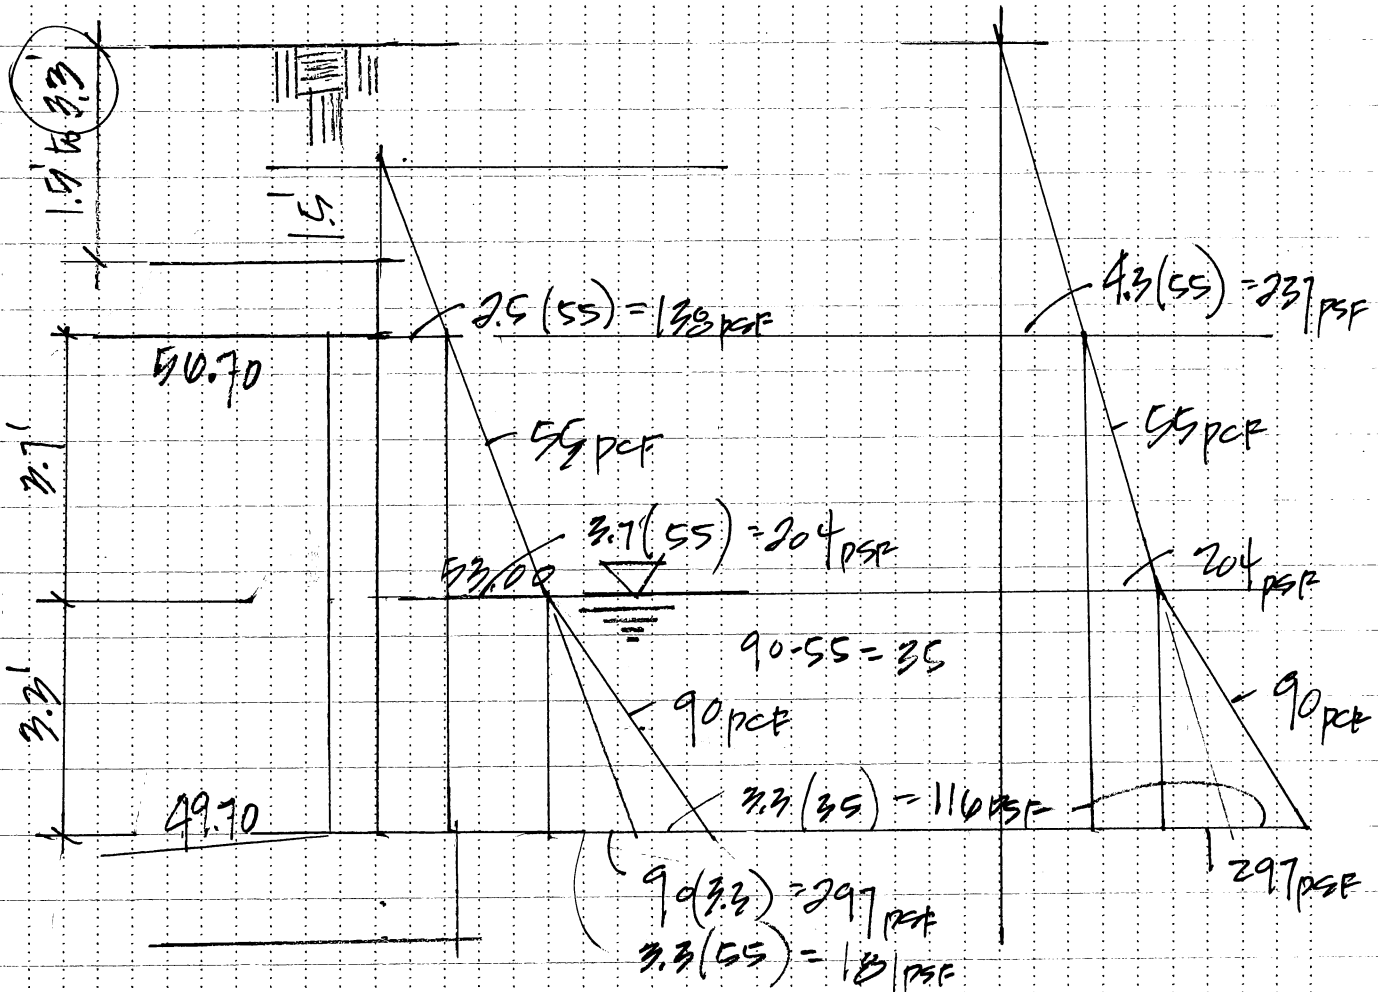 1.5' to 3.3'
1.5'
2.5 (55) = 138 PSF
4.3 (55) = 237 PSF
56.70
3.7'
55 PCF
55 PCF
3.7 (55) = 204 PSF
204 PSF
53.00
90-55 = 35
3.3'
90 PCF
90 PCF
3.3 (35) = 116 PSF
49.70
90(3.3) = 297 PSF
297 PSF
3.3 (55) = 181 PSF